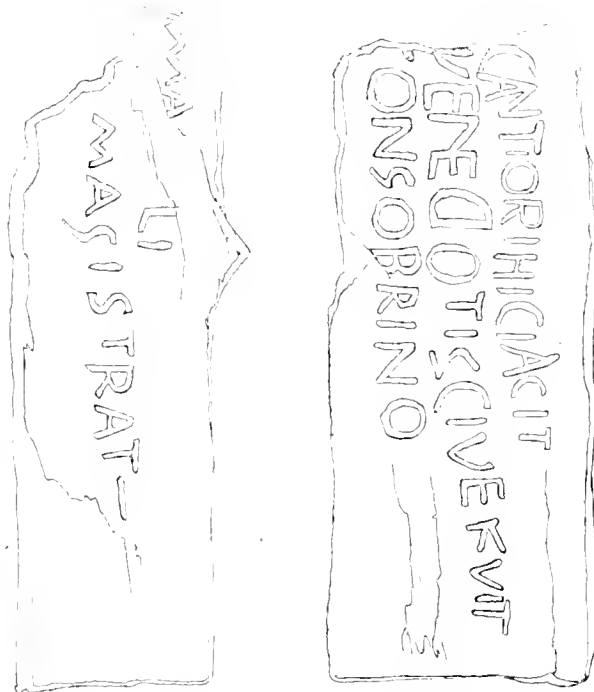 CANTIORIHICIACIT
VENEDOTISCIVEFVIT
CONSOBRINO
MA
LI
MAGISTRATI